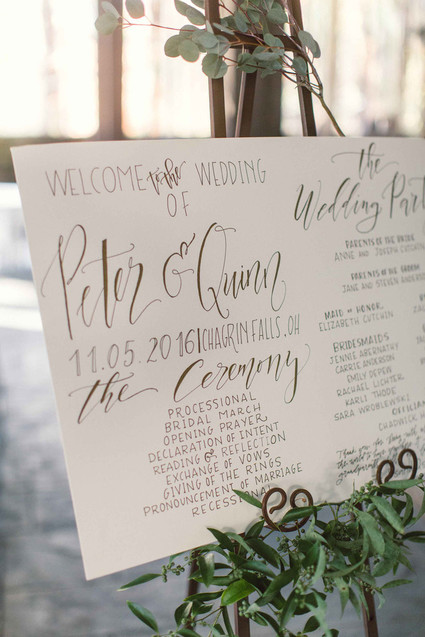 WELCOME to the WEDDING
OF
Peter & Quinn
11.05.2016 | CHAGRIN FALLS, OH
the Ceremony
PROCESSIONAL
BRIDAL MARCH
OPENING PRAYER
DECLARATION OF INTENT
READING & REFLECTION
EXCHANGE OF VOWS
GIVING OF THE RINGS
PRONOUNCEMENT OF MARRIAGE
RECESSIONAL
the
Wedding Part
PARENTS OF THE BRIDE
ANNE AND JOSEPH CUTCHIN
PARENTS OF THE GROOM
JANE AND STEVEN ANDERSON
MAID OF HONOR
ELIZABETH CUTCHIN
BRIDESMAIDS
JENNIE ABERNATHY
CARRIE ANDERSON
EMILY DEPEW
RACHAEL LICHTER
KARLI THODE
SARA WROBLEWSKI
OFFICIA
CHADWICK
Thank you